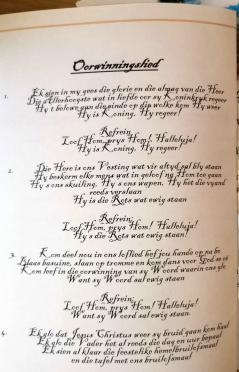 Oorwinningslied
1. Ek sien in my gees die glorie en die almag van die Heer
Die Allerhoogste wat in liefde oor sy Koninkryk regeer
Hy't belowe aan die einde op die wolke kom Hy weer
Hy is Koning. Hy regeer!
Refrein:
Loof Hom, prys Hom! Halleluja!
Hy is Koning. Hy regeer!
2. Die Here is ons Vesting wat vir altyd sal bly staan
Hy beskerm elke mens wat in geloof na Hom toe gaan
Hy's ons skuiling. Hy's ons wapen. Hy het die vyand
reeds verslaan
Hy is die Rots wat ewig staan
Refrein:
Loof Hom, prys Hom! Halleluja!
Hy's die Rots wat ewig staan!
3. Kom deel nou in ons loflied hef jou hande op na bo
Blaas basuine, slaan op tromme en kom dans voor God se
Kom leef in die oorwinning van sy Woord waarin ons glo
Want sy Woord sal ewig staan.
Refrein:
Loof Hom, prys Hom! Halleluja!
Want sy Woord sal ewig staan.
4. Ek glo dat Jesus Christus weer sy bruid gaan kom haal
Ek glo die Vader het al reeds die dag en uur bepaal
Ek sien al klaar die feestelike hemelbruilofsmaal
en die tafel met ons bruilofsmaal